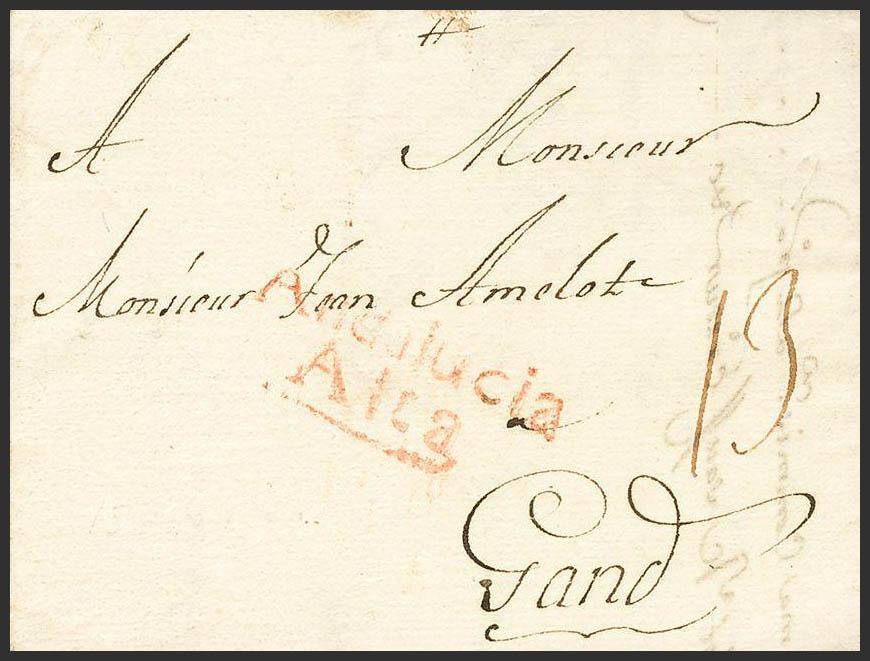 A Monsieur
Monsieur Jean Amelot
Andalucia
Alta
13
a
Gand